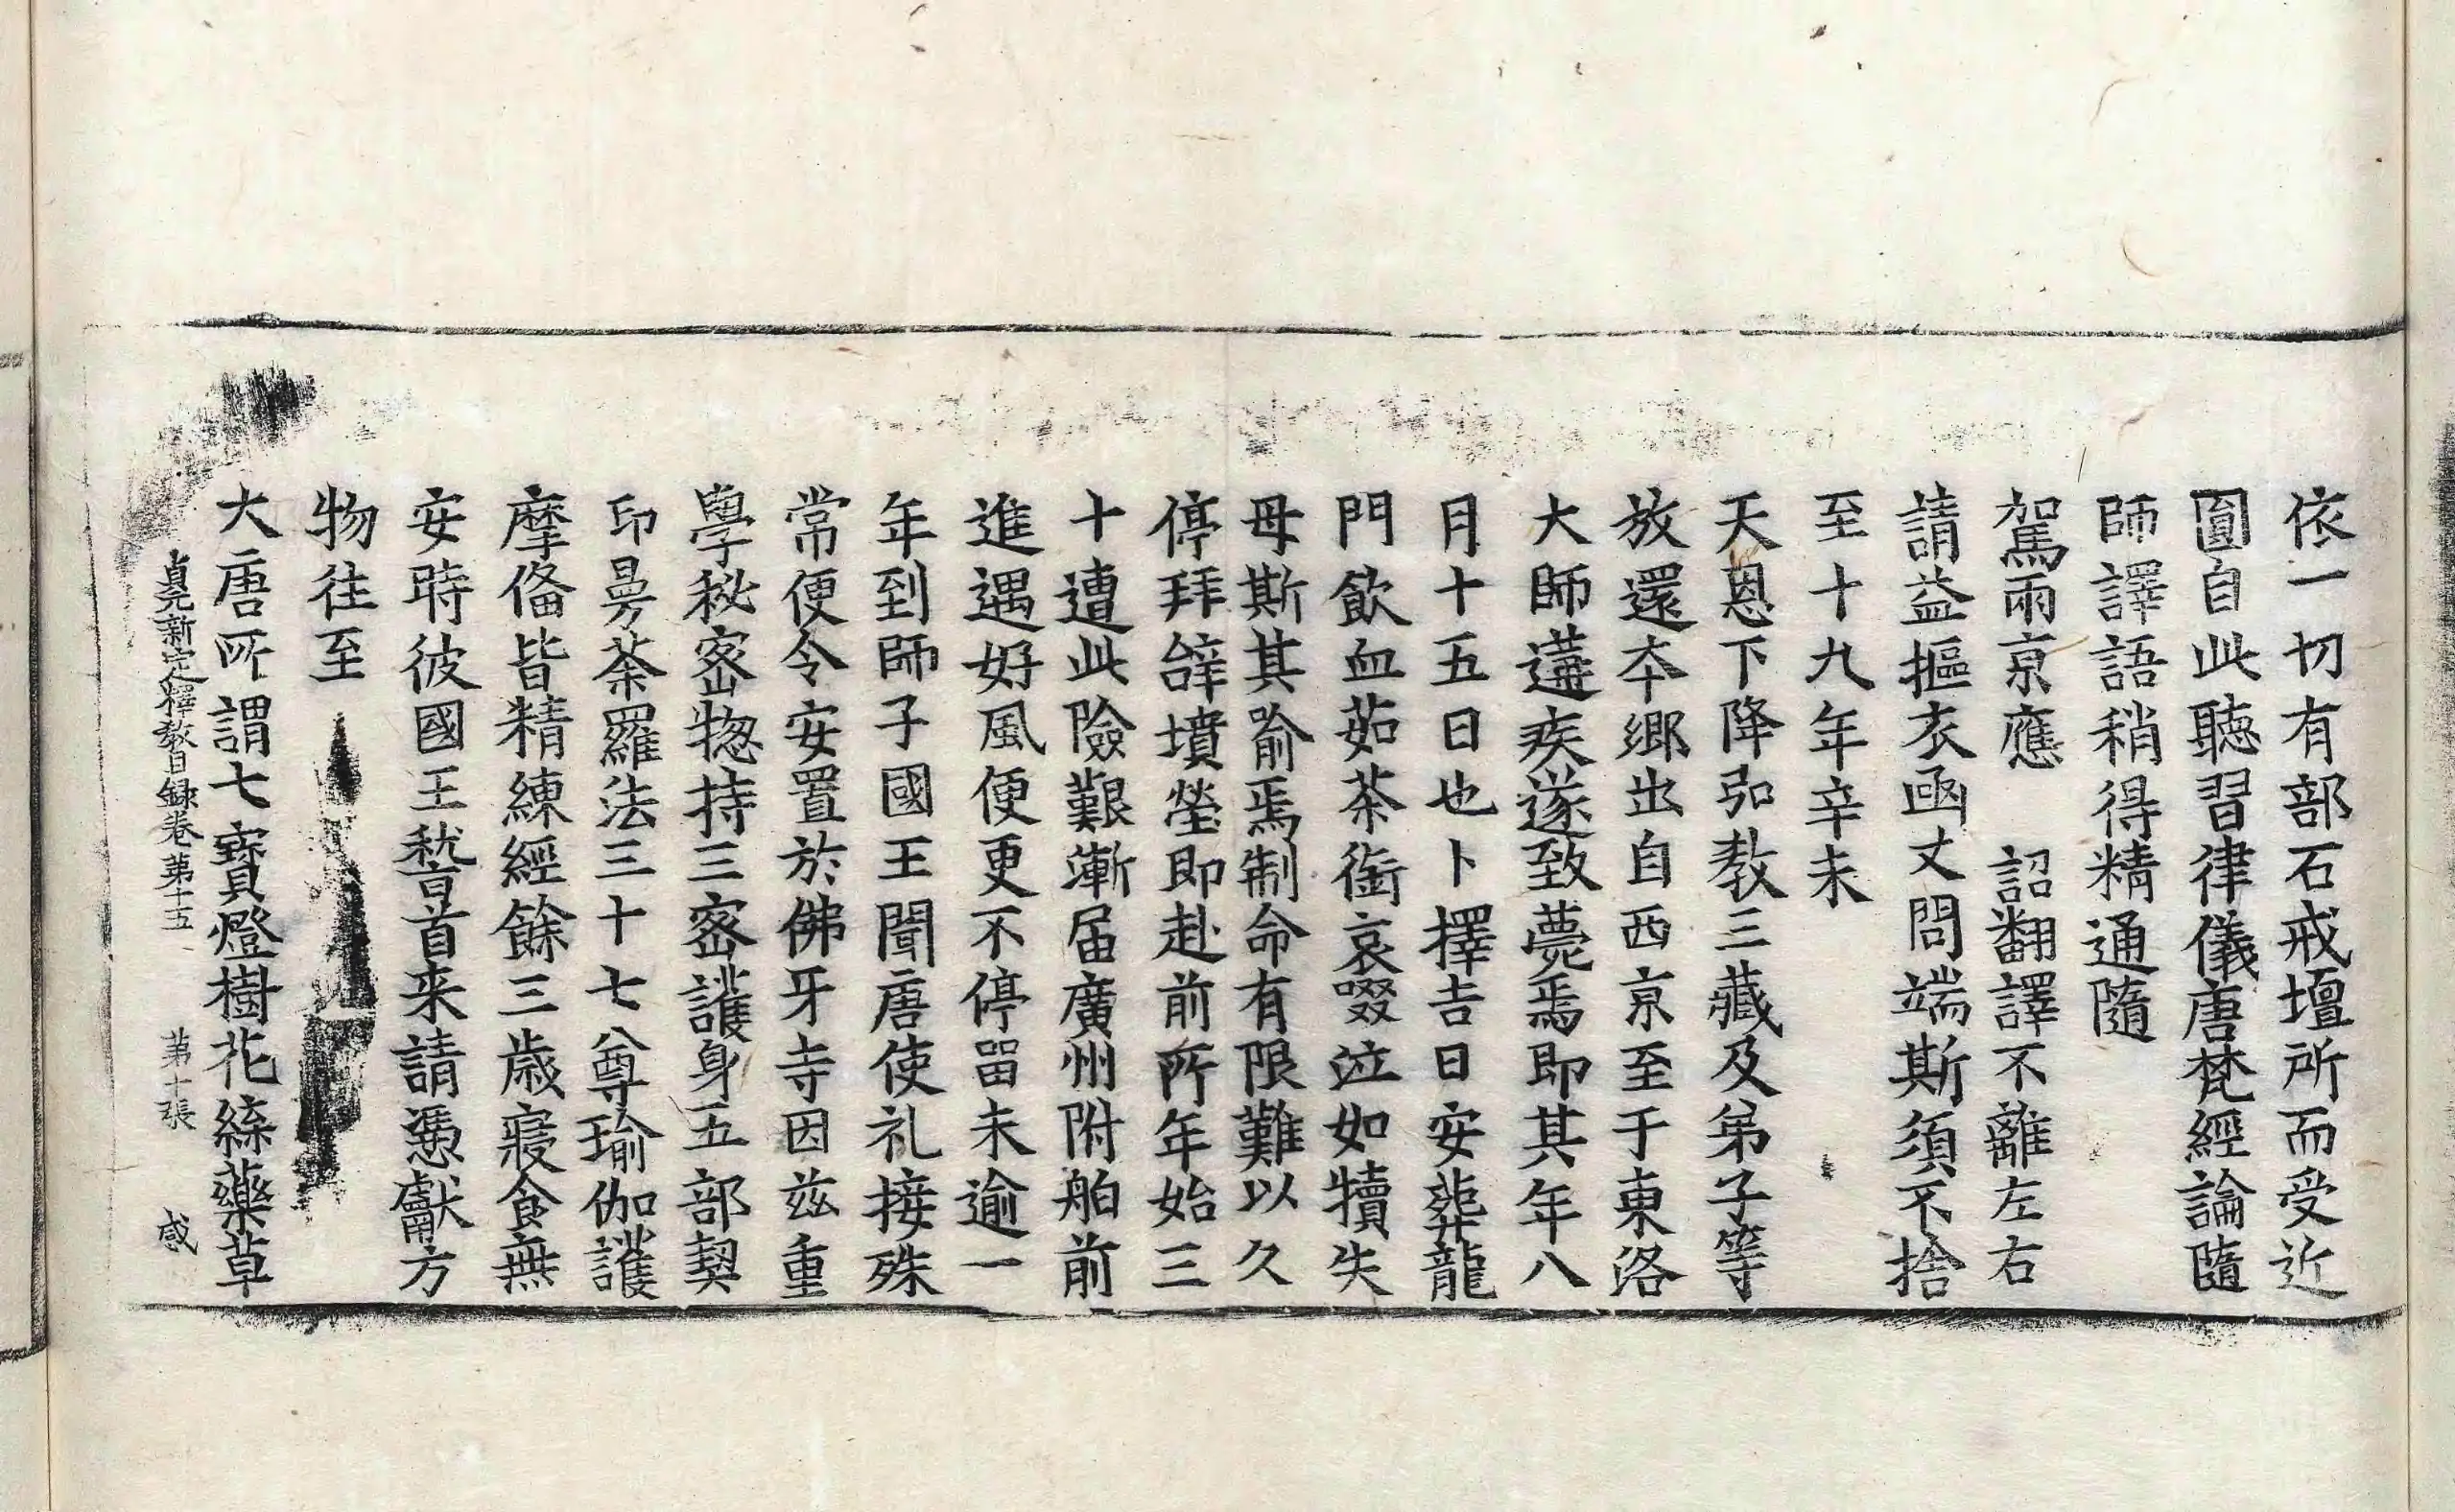 依一切有部石戒壇所而受近
圓自此聽習律儀唐梵經論隨
師譯語稍得精通隨
駕兩京應　詔翻譯不離左右
請益摳衣函丈問端斯須不捨
至十九年辛未
天恩下降弘教三藏及弟子等
放還本鄉出自西京至于東洛
大師遘疾遂致薨焉即其年八
月十五日也卜擇吉日安葬龍
門飲血茹荼銜哀啜泣如犢失
母斯其喻焉制命有限難以久
停拜辝墳塋即赴前所年始三
十遭此險艱漸届廣州附舶前
進遇好風便更不停留未逾一
年到師子國王聞唐使礼接殊
常便令安置於佛牙寺因兹重
學秘密惣持三密護身五部契
印曼荼羅法三十七尊瑜伽護
摩俻皆精練經餘三歲寢食無
安時彼國王嵆首来請憑獻方
物往至
大唐所謂七寶燈樹花絲藥草
貞元新定釋教目録卷第十五　第十張　感